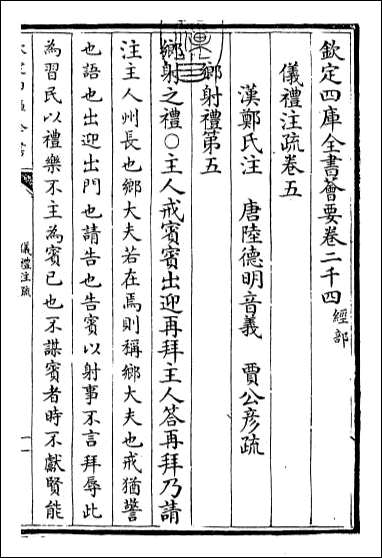 欽定四庫全書薈要卷二千四經部
儀禮注疏卷五
漢鄭氏注 唐陸德明音義 賈公彥疏
鄉射禮第五
鄉射之禮○主人戒賓賓出迎再拜主人答再拜乃請
注主人州長也鄉大夫若在焉則稱鄉大夫也戒猶警
也語也出迎出門也請告也告賓以射事不言拜辱此
為習民以禮樂不主為賓已也不謀賓者時不獻賢能
儀禮注疏
一